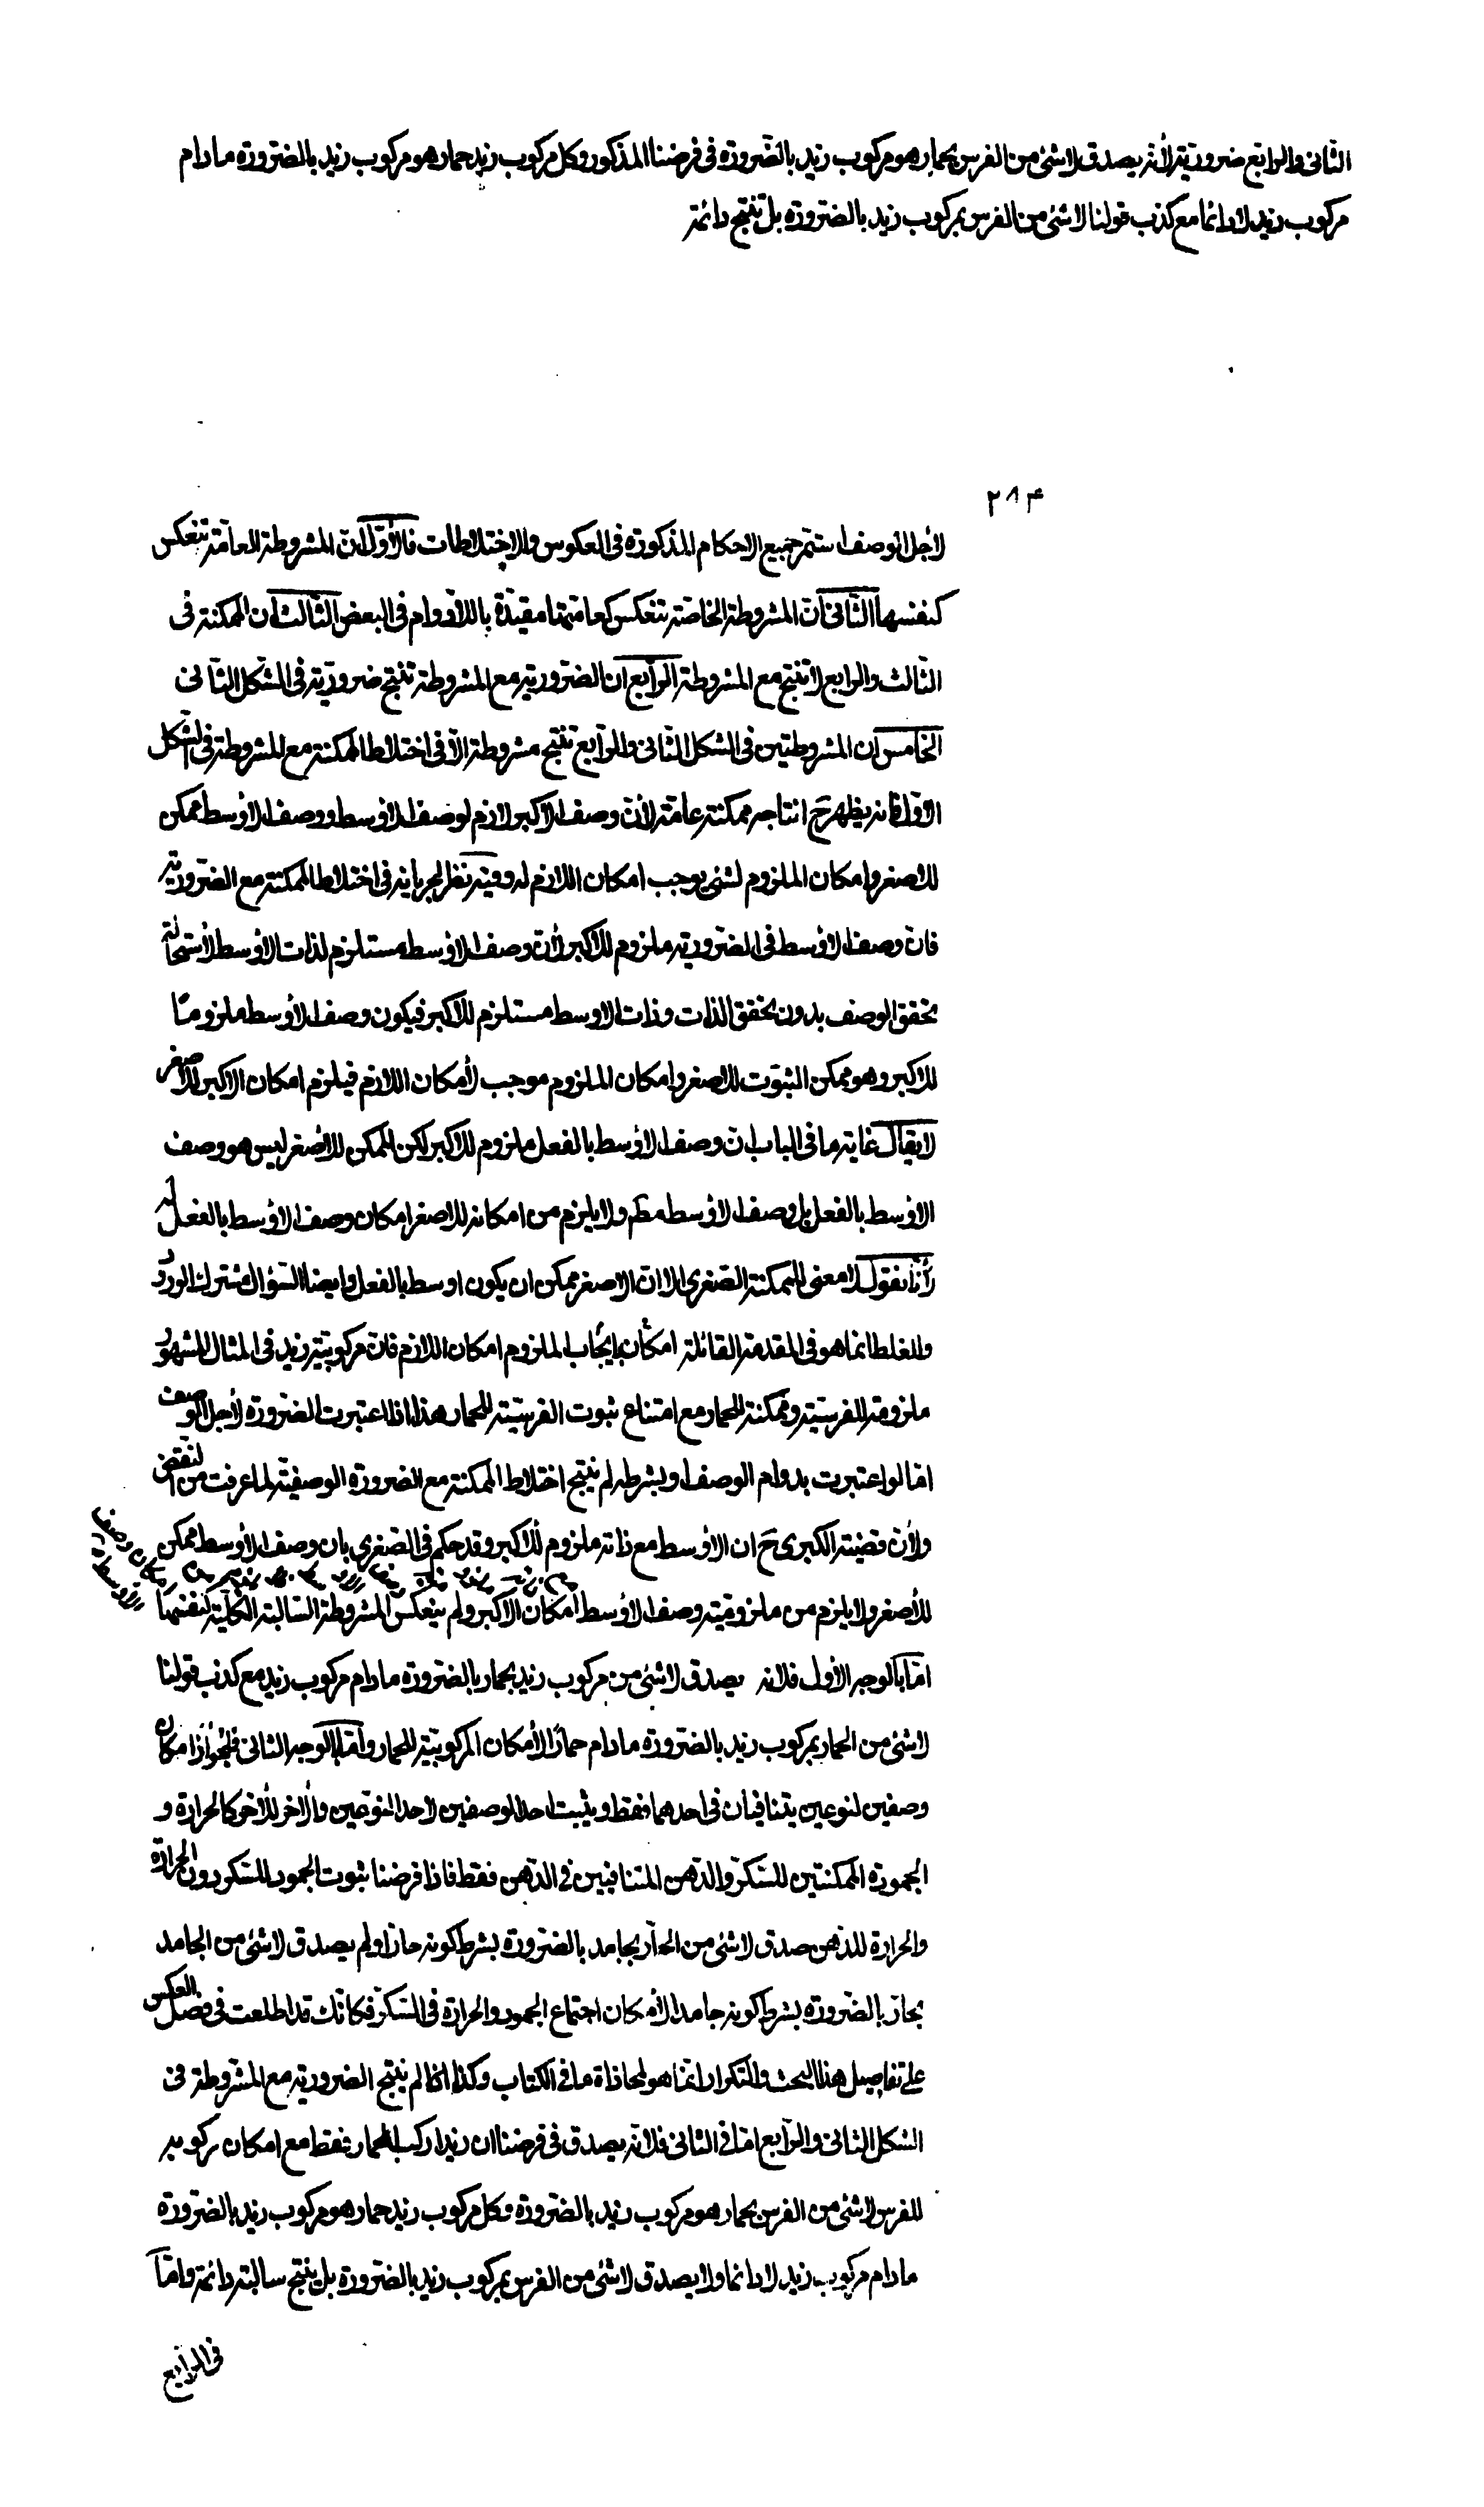 الثانى والرابع ضرورية لأنه يصدق لا شئ من الفرس بحمار هو مركوب زيد بالضرورة فى فرضنا المذكور وكل مركوب زيد حمار هو مركوب زيد بالضرورة مادام
مركوب زيد لا دائما مع كذب قولنا لا شئ من الفرس بمركوب زيد بالضرورة بل تنتج دائمة
٢٨۴
لاجل الوصف استمر جميع الاحكام المذكورة فى العكوس والاختلاطات فالأول ان المشروطة العامة تنعكس
كنفسها الثانى ان المشروطة الخاصة تنعكس كعامتها مقيدة باللادوام فى البعض الثالث ان الممكنة فى
الثالث والرابع لا تنتج مع المشروطة الرابع ان الضرورية مع المشروطة تنتج ضرورية فى الشكل الثانى
الخامس ان المشروطتين فى الشكل الثانى والرابع تنتج مشروطة الا فى اختلاط الممكنة مع المشروطة فى الشكل
الاول فانه يظهر ح انتاجه ممكنة عامة لأن وصف الاكبر لازم لوصف الاوسط ووصف الاوسط ممكن
للاصغر وامكان الملزوم لشئ يوجب امكان اللازم له وفيه نظر لجريانه فى اختلاط الممكنة مع الضرورية
فان وصف الاوسط فى الضرورية ملزوم للاكبر لأن وصف الاوسط مستلزم لذات الاوسط لاستحالة
تحقق الوصف بدون تحقق الذات وذات الاوسط مستلزم للاكبر فيكون وصف الاوسط ملزوما
للاكبر وهو ممكن الثبوت للاصغر وامكان الملزوم موجب لأمكان اللازم فيلزم امكان الاكبر للاصغر
لا يقال غاية ما فى الباب ان وصف الاوسط بالفعل ملزوم للاكبر لكن الممكن للأصغر ليس هو وصف
الاوسط بالفعل بل وصف الاوسط مطم ولا يلزم من امكانه للاصغر امكان وصف الاوسط بالفعل له
لأنا نقول لا معنى للممكنة الصغرى الا ان الاصغر ممكن ان يكون اوسط بالفعل وايضا السؤال مشترك الورود
والغلط انما هو فى المقدمة القائلة امكان ايجاب الملزوم امكان اللازم فان مركوبية زيد فى المثال المشهور
ملزومة للفرسية وممكنة للحمار مع امتناع ثبوت الفرسية للحمار هذا اذا اعتبرت الضرورة لأجل الوصف
اما لو اعتبرت بدوام الوصف او بشرطه لم ينتج اختلاط الممكنة مع الضرورة الوصفية لما عرفت من النقض
ولأن قضية الكبرى ح ان الاوسط مع ذاته ملزوم للاكبر وقد حكم فى الصغرى بان وصف الاوسط ممكن
للأصغر ولا يلزم من ملزومية وصف الاوسط امكان الاكبر ولم ينعكس المشروطة السالبة الكلية كنفسها
اما بالوجه الأول فلانه يصدق لا شئ من مركوب زيد بحمار بالضرورة مادام مركوب زيد مع كذب قولنا
لا شئ من الحمار بمركوب زيد بالضرورة مادام حمارًا لأمكان المركوبية للحمار واما بالوجه الثانى فلجواز امكان
وصفين لنوعين يتنافيان فى احدهما فقط ويثبت احد الوصفين لاحد النوعين والاخر للأخر كالحرارة و
الجمودة الممكنتين للسكر والدهن المتنافيين فى الدهن فقط فاذا فرضنا ثبوت الجمود للسكر دون الحرارة
والحرارة للدهن صدق لا شئ من الحار بجامد بالضرورة بشرط كونه حارا ولم يصدق لا شئ من الجامد
بحار بالضرورة بشرط كونه جامدا لأمكان اجتماع الجمود والحرارة فى السكر فكانك قد اطلعت فى فصل العكس
على تفاصيل هذا البحث والتكرار انما هو لمحاذاة ما فى الكتاب وكذا انما لم ينتج الضرورية مع المشروطة فى
الشكل الثانى والرابع اما فى الثانى فلانه يصدق فى فرضنا ان زيدا ركب الحمار فقط مع امكان ركوبه
للفرس لا شئ من الفرس بحمار هو مركوب زيد بالضرورة وكل مركوب زيد حمار هو مركوب زيد بالضرورة
مادام مركوب زيد لا دائما ولا يصدق لا شئ من الفرس بمركوب زيد بالضرورة بل ينتج سالبة دائمة واما
فى الرابع